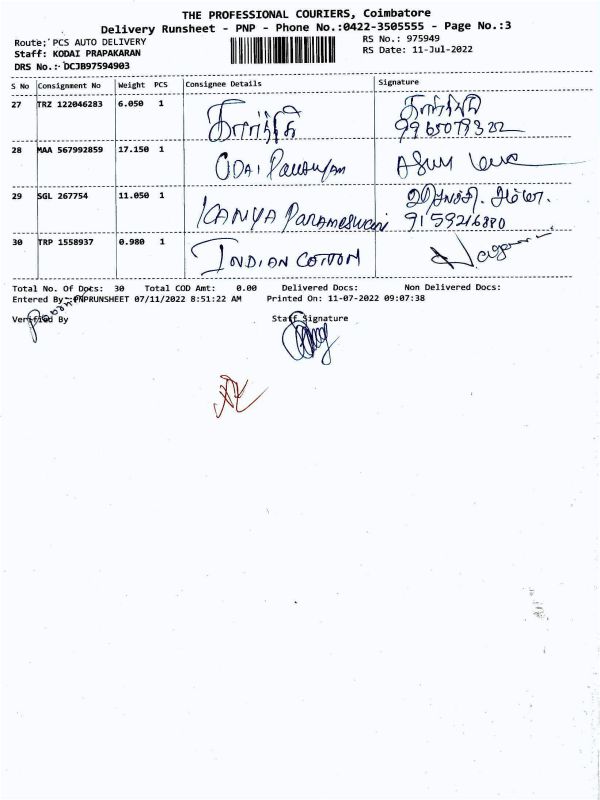 THE PROFESSIONAL COURIERS, Coimbatore
Delivery Runsheet - PNP - Phone No.:0422-3505555 - Page No.:3
Route: PCS AUTO DELIVERY
RS No.: 975949
Staff: KODAI PRAPAKARAN
RS Date: 11-Jul-2022
DRS No.: DCJB97594903
S No Consignment No Weight PCS Consignee Details Signature
27 TRZ 122046283 6.050 1 கார்த்தி கார்த்தி
9965079322
28 MAA 567992859 17.150 1
29 SGL 267754 11.050 1 KANYA PARAMESWARI
9159216880
30 TRP 1558937 0.980 1 INDIAN COTTON
Total No. Of Docs: 30 Total COD Amt: 0.00 Delivered Docs: Non Delivered Docs:
Entered By: PNPRUNSHEET 07/11/2022 8:51:22 AM Printed On: 11-07-2022 09:07:38
Verified By Staff Signature